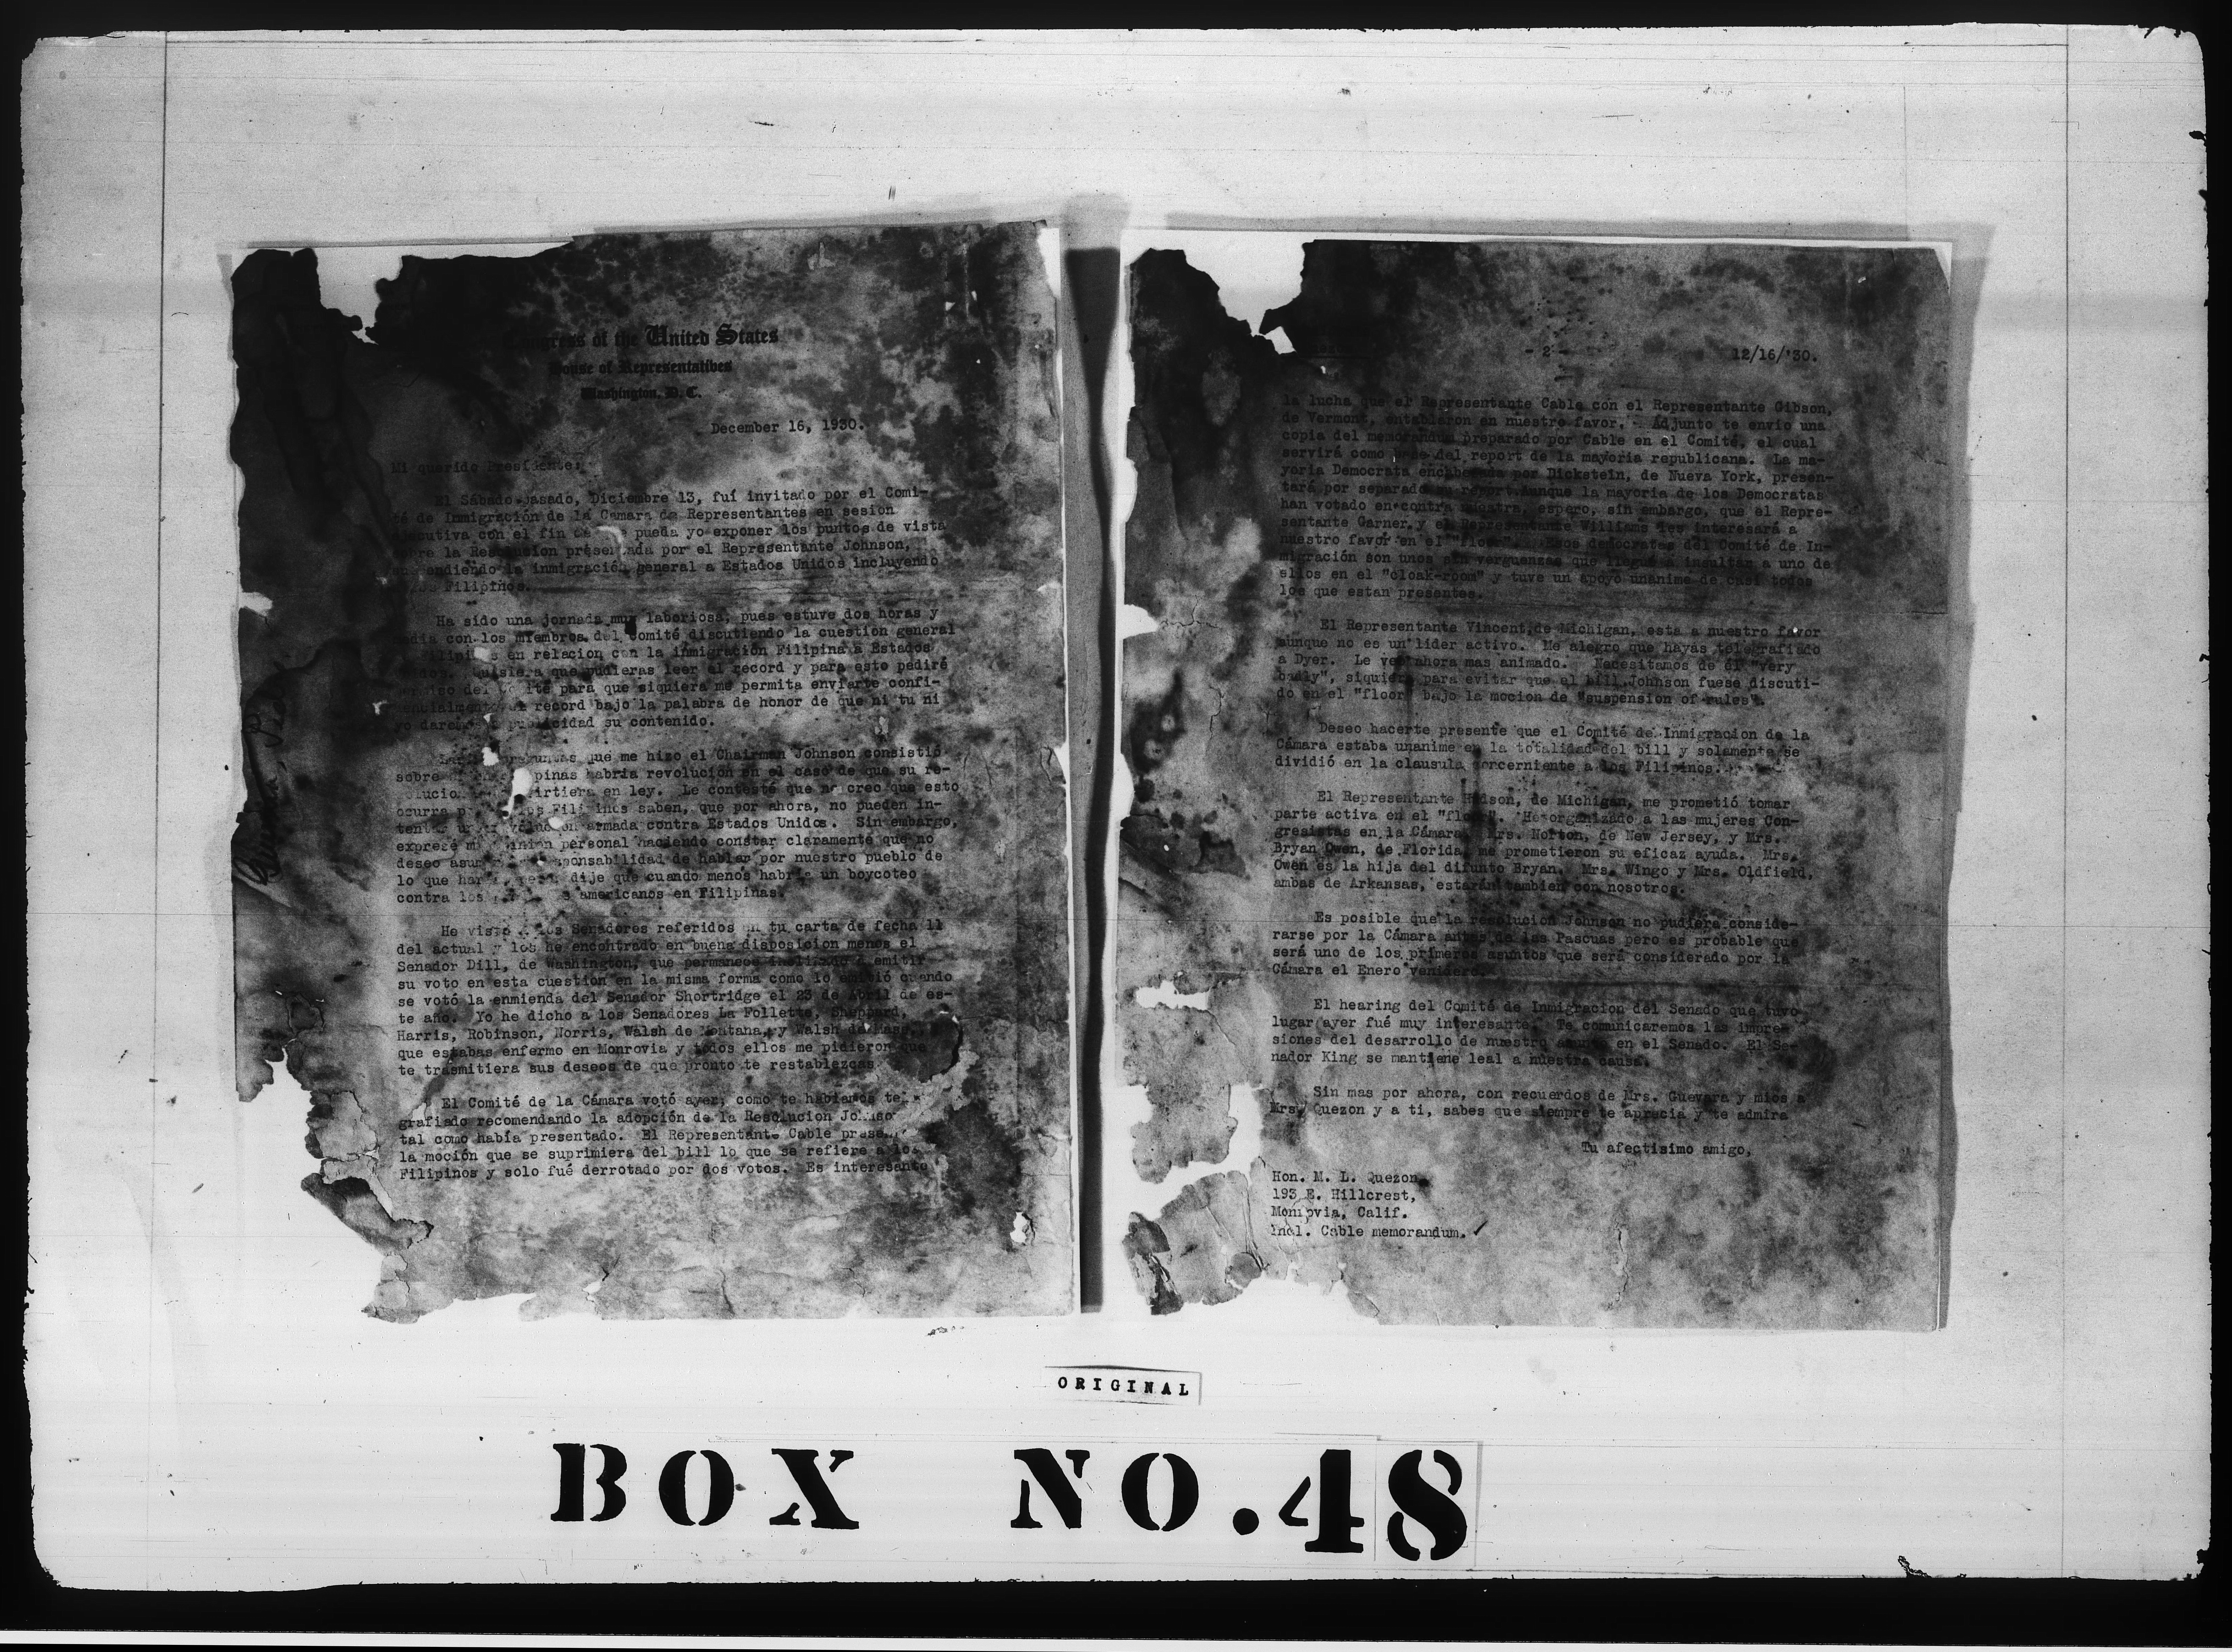 Congress of the United States
House of Representatives
Washington, D. C.
December 16, 1930.
Mi querido Presidente:
El Sábado pasado, Diciembre 13, fuí invitado por el Comi-
té de Inmigración de la Camara de Representantes en sesión
ejecutiva con el fin de pueda yo exponer los puntos de vista
sobre la Resolucion presentada por el Representante Johnson,
la inmigración general a Estados Unidos incluyendo
Filipinos.
Ha sido una jornada muy laboriosa, pues estuve dos horas y
media con los miembros del Comité discutiendo la cuestión general
Filipinas en relacion con la inmigración Filipina a Estados
Unidos. Quisiera que pudieras leer el record y para esto pediré
permiso del Comité para que siquiera me permita enviarte confi-
dencialmente el record bajo la palabra de honor de que ni tu ni
yo daremos a publicidad su contenido.
que me hizo el Chairman Johnson consistió
sobre habria revolución en el caso de que su re-
en ley. Le contesté que no creo que esto
ocurra Filipinos saben, que por ahora, no pueden in-
tentar armada contra Estados Unidos. Sin embargo,
expresé mi opinion personal haciendo constar claramente que no
deseo asumir responsabilidad de hablar por nuestro pueblo de
lo que dije que cuando menos habria un boycoteo
contra los americanos en Filipinas.
He visto a los Senadores referidos en tu carta de fecha 11
del actual y los he encontrado en buena disposicion menos el
Senador Dill, de Washington, que permanece inclinado a emitir
su voto en esta cuestión en la misma forma como lo emitió cuando
se votó la enmienda del Senador Shortridge el 23 de Abril de es-
te año. Yo he dicho a los Senadores La Follette, Sheppard,
Harris, Robinson, Norris, Walsh de Montana, y Walsh de Mass.,
que estabas enfermo en Monrovia y todos ellos me pidieron que
te trasmitiera sus deseos de que pronto te restablezcas.
El Comité de la Cámara votó ayer, como te habiamos tele-
grafiado recomendando la adopción de la Resolucion Johnson
tal como había presentado. El Representante Cable presentó
la moción que se suprimiera del bill lo que se refiere a los
Filipinos y solo fué derrotado por dos votos. Es interesante
- 2 - 12/16/'30.
la lucha que el Representante Cable con el Representante Gibson,
de Vermont, entablaron en nuestro favor. Adjunto te envio una
copia del memorandum preparado por Cable en el Comité, el cual
servirá como base del report de la mayoria republicana. La ma-
yoria Democrata encabezada por Dickstein, de Nueva York, presen-
tará por separado su report. Aunque la mayoria de los Democratas
han votado en contra nuestra, espero, sin embargo, que el Repre-
sentante Garner y el Representante Williams les interesará a
nuestro favor en el "floor". Esos democratas del Comité de In-
migración son unos sin verguenzas que llegué a insultar a uno de
ellos en el "cloak-room" y tuve un apoyo unanime de casi todos
los que estan presentes.
El Representante Vincent, de Michigan, esta a nuestro favor
aunque no es un lider activo. Me alegro que hayas telegrafiado
a Dyer. Le veo ahora mas animado. Necesitamos de él "very
badly", siquiera para evitar que el bill Johnson fuese discuti-
do en el "floor" bajo la mocion de "suspension of rules".
Deseo hacerte presente que el Comité de Inmigracion de la
Cámara estaba unanime en la totalidad del bill y solamente se
dividió en la clausula concerniente a los Filipinos.
El Representante Hudson, de Michigan, me prometió tomar
parte activa en el "floor". He organizado a las mujeres Con-
gresistas en la Cámara. Mrs. Norton, de New Jersey, y Mrs.
Bryan Owen, de Florida, me prometieron su eficaz ayuda. Mrs.
Owen es la hija del difunto Bryan. Mrs. Wingo y Mrs. Oldfield,
ambas de Arkansas, estarán tambien con nosotros.
Es posible que la resolucion Johnson no pudiera conside-
rarse por la Cámara antes de las Pascuas pero es probable que
será uno de los primeros asuntos que será considerado por la
Cámara el Enero venidero.
El hearing del Comité de Inmigracion del Senado que tuvo
lugar ayer fué muy interesante. Te comunicaremos las impre-
siones del desarrollo de nuestro asunto en el Senado. El Se-
nador King se mantiene leal a nuestra causa.
Sin mas por ahora, con recuerdos de Mrs. Guevara y mios a
Mrs. Quezon y a ti, sabes que siempre te aprecia y te admira
Tu afectisimo amigo,
Hon. M. L. Quezon,
193 E. Hillcrest,
Monrovia, Calif.
Incl. Cable memorandum. ✓
ORIGINAL
BOX NO. 48